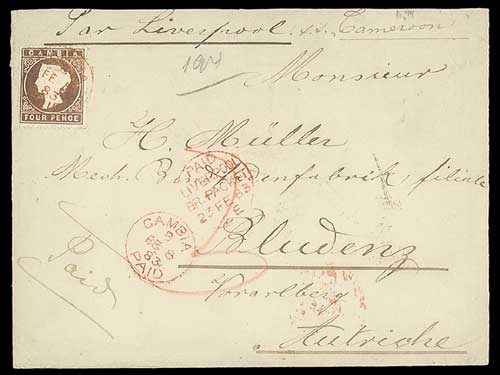 Par Liverpool s.s. Cameroon
GAMBIA
FOUR PENCE
Monsieur
H. Müller
Mech. filiale
PAID
LIVERPOOL
BR. PACKET
FE 83
GAMBIA
83
PAID
Paid
Bludenz
Vorarlberg
Autriche